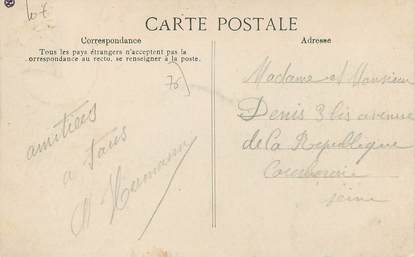 107
CARTE POSTALE
Correspondance
Tous les pays étrangers n'acceptent pas la
correspondance au recto, se renseigner à la poste.
Adresse
75
amitiées
a tous
Hermann
Madame et Monsieur
Denis 3 bis avenue
de La République
Seine